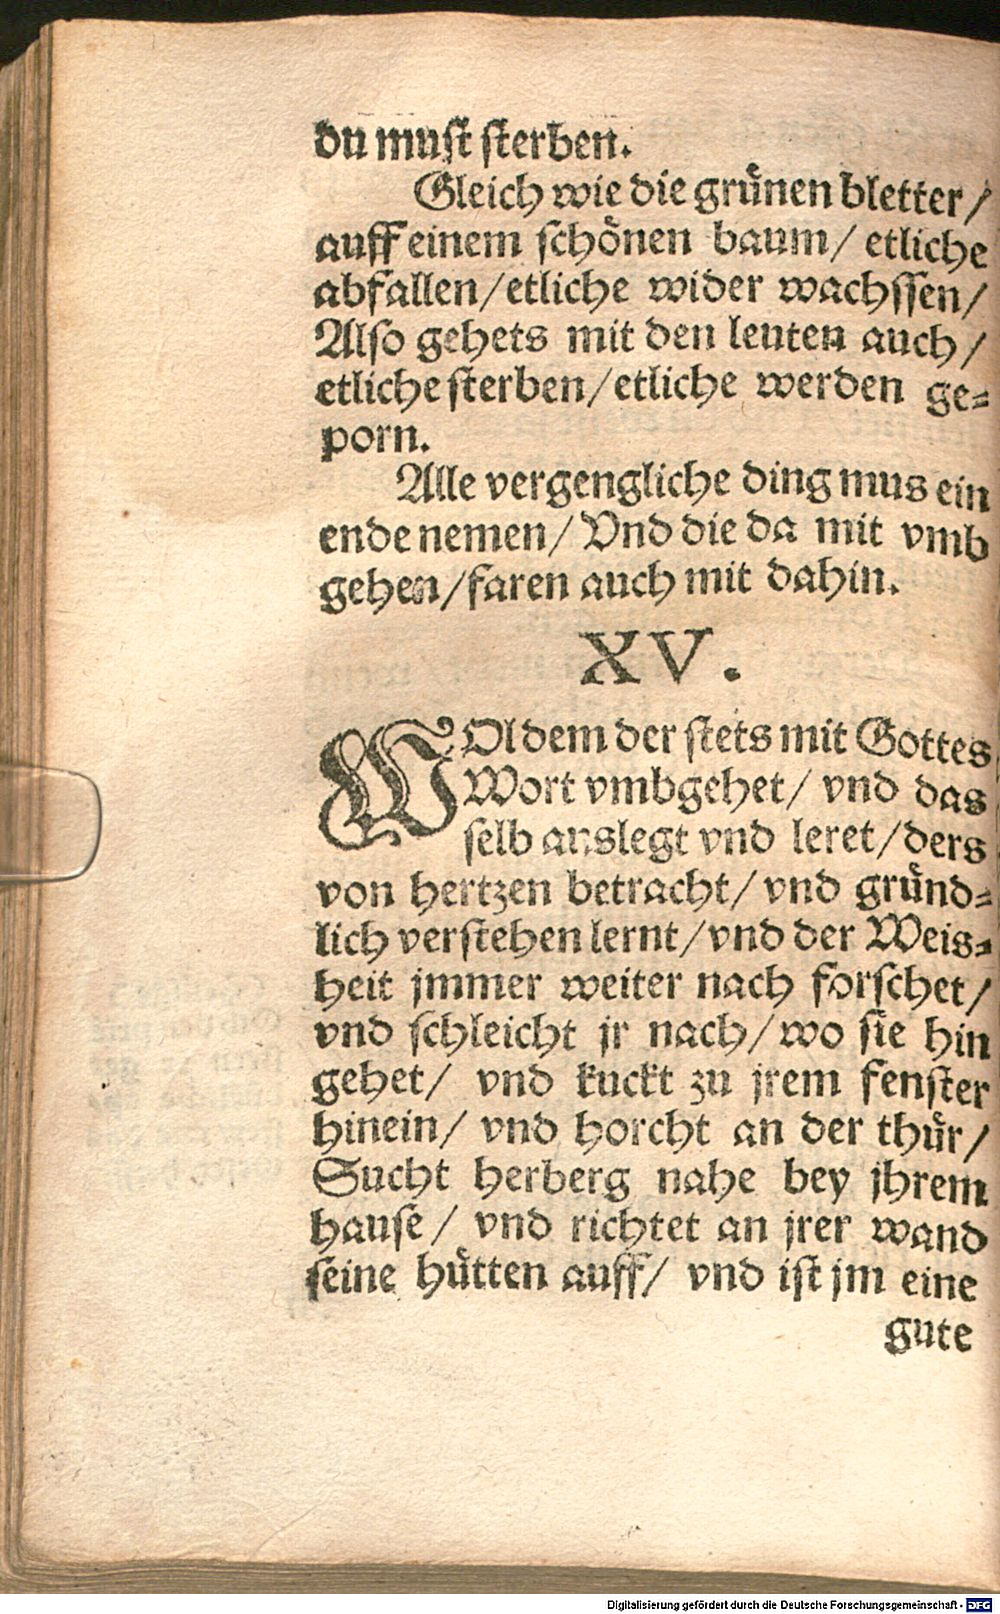 du must sterben.
Gleich wie die grünen bletter/
auff einem schönen baum/ etliche
abfallen/etliche wider wachssen/
Also gehets mit den leuten auch/
etliche sterben/etliche werden ge=
porn.
Alle vergengliche ding mus ein
ende nemen/ Vnd die da mit vmb
gehen/faren auch mit dahin.
XV.
WOl dem der stets mit Gottes
Wort vmbgehet/ vnd das
selb auslegt vnd leret/ders
von hertzen betracht/ vnd gründ=
lich verstehen lernt/vnd der Weis=
heit jmmer weiter nach forschet/
vnd schleicht jr nach/ wo sie hin
gehet/ vnd kuckt zu jrem fenster
hinein/ vnd horcht an der thür/
Sucht herberg nahe bey jhrem
hause/ vnd richtet an jrer wand
seine hütten auff/ vnd ist jm eine
gute
Digitalisierung gefördert durch die Deutsche Forschungsgemeinschaft - DFG